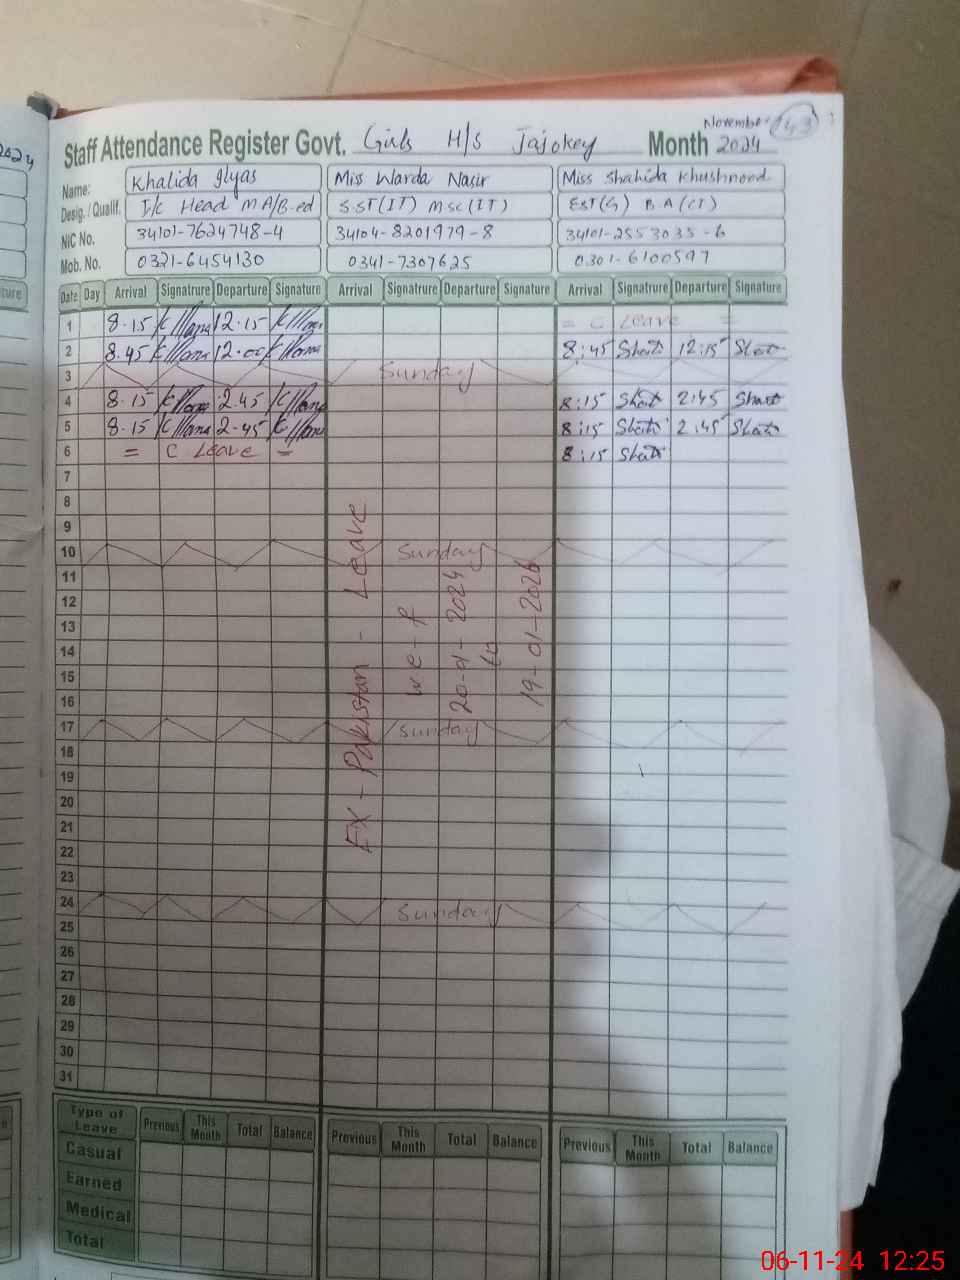 2024
November 143
Staff Attendance Register Govt. Girls H/S Jajokey Month 2024
Name: Khalida Ilyas Miss Warda Nasir Miss Shahida Khushnood
Desig. / Qualif. I/c Head M A/B-ed S.ST(IT) M.SC(IT) EST(G) B A (CT)
NIC No. 34101-7624748-4 34104-8201979-8 34101-2553035-6
Mob. No. 0321-6454130 0341-7307625 0301-6100597
Date Day Arrival Signatrure Departure Signature Arrival Signatrure Departure Signature Arrival Signatrure Departure Signature
1 8.15 12.15 = C Leave =
2 8.45 12.00 8:45 12:15
3 Sunday
4 8.15 2.45 8:15 2:45
5 8.15 2.45 8:15 2:45
6 = C Leave = 8:15
7
8
9
10 Sunday
11
12
13
14
15
16
17 Sunday
18
19
20
21
22
23
24 Sunday
25
26
27
28
29
30
31
EX - Pakistan - Leave
w e - f
20-01-2024
to
19-01-2026
Type of Leave Previous This Month Total Balance Previous This Month Total Balance Previous This Month Total Balance
Casual
Earned
Medical
Total
06-11-24 12:25